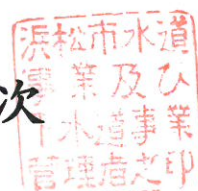 次
浜松市水道
事業及ひ
下水道事業
管理者之印